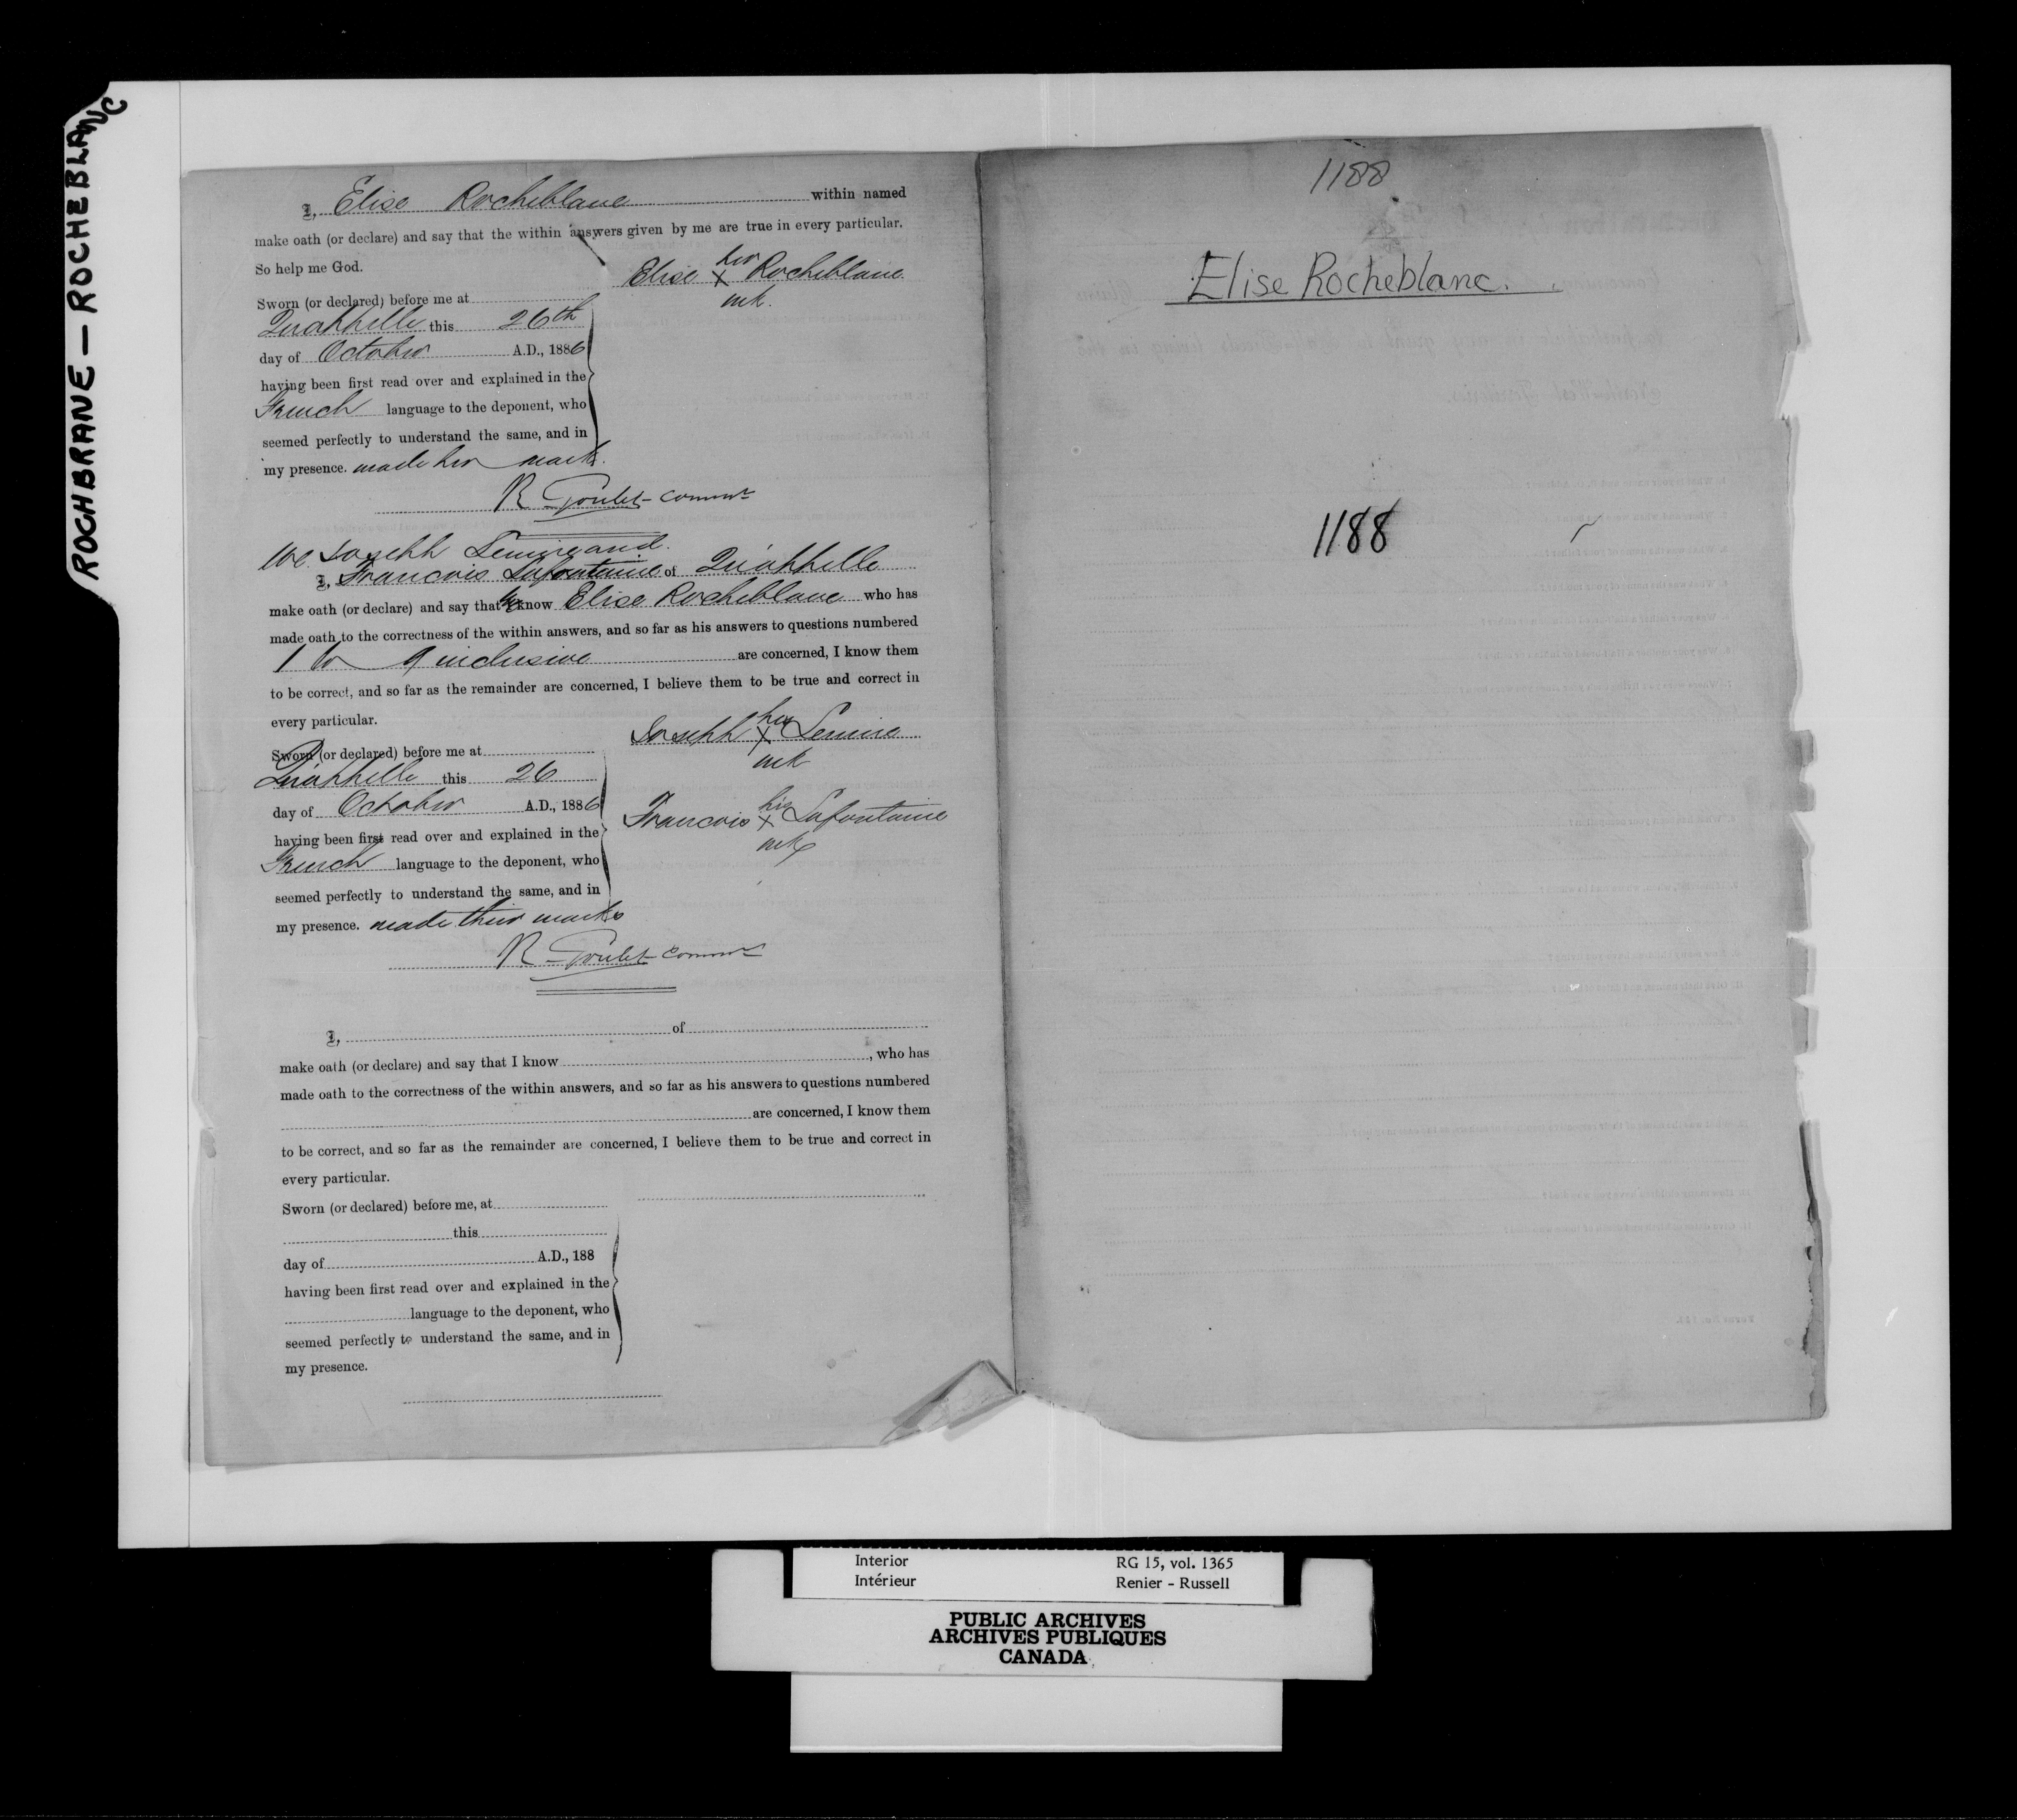 ROCHBRANE — ROCHEBLANC
I, Elise Rocheblanc within named
make oath (or declare) and say that the within answers given by me are true in every particular.
So help me God.
Elise her X Rocheblanc
mk.
Sworn (or declared) before me at
Qu'appelle this 26th
day of October A.D., 1886
having been first read over and explained in the
French language to the deponent, who
seemed perfectly to understand the same, and in
my presence. made her mark.
R Goulet commr
We Joseph Lemire and
I, Francois Lafontaine of Qu'appelle
make oath (or declare) and say that we know Elise Rocheblanc who has
made oath to the correctness of the within answers, and so far as his answers to questions numbered
1 to 9 inclusive are concerned, I know them
to be correct, and so far as the remainder are concerned, I believe them to be true and correct in
every particular.
Joseph his X Lemire
mk
Sworn (or declared) before me at
Qu'appelle this 26
day of October A.D., 1886
Francois his X Lafontaine
mk
having been first read over and explained in the
French language to the deponent, who
seemed perfectly to understand the same, and in
my presence. made their marks
R Goulet commr
I, of
make oath (or declare) and say that I know , who has
made oath to the correctness of the within answers, and so far as his answers to questions numbered
are concerned, I know them
to be correct, and so far as the remainder are concerned, I believe them to be true and correct in
every particular.
Sworn (or declared) before me, at
this
day of A.D., 188
having been first read over and explained in the
language to the deponent, who
seemed perfectly to understand the same, and in
my presence.
1188
Elise Rocheblanc.
1188
Interior RG 15, vol. 1365
Intérieur Renier - Russell
PUBLIC ARCHIVES
ARCHIVES PUBLIQUES
CANADA